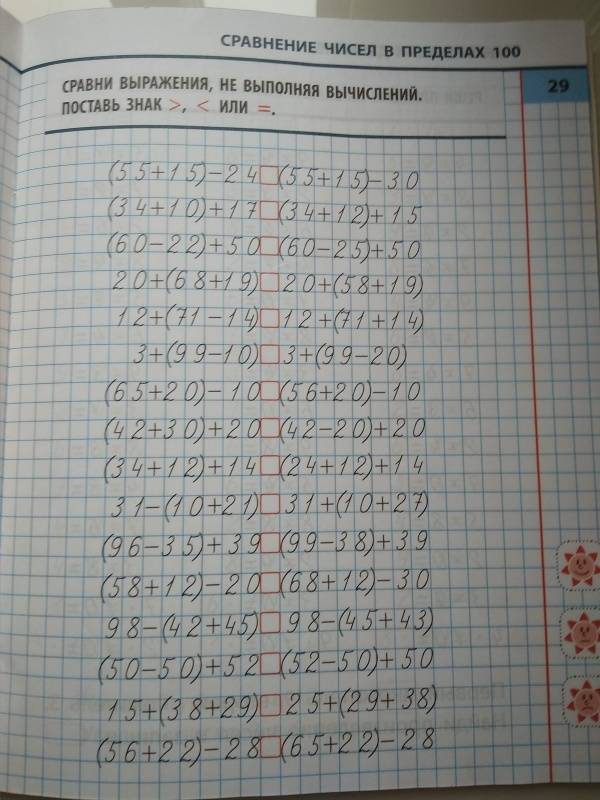 СРАВНЕНИЕ ЧИСЕЛ В ПРЕДЕЛАХ 100
29
СРАВНИ ВЫРАЖЕНИЯ, НЕ ВЫПОЛНЯЯ ВЫЧИСЛЕНИЙ.
ПОСТАВЬ ЗНАК >, < ИЛИ =.
(55+15)-24□(55+15)-30
(34+10)+17□(34+12)+15
(60-22)+50□(60-25)+50
20+(68+19)□20+(58+19)
12+(71-14)□12+(71+14)
3+(99-10)□3+(99-20)
(65+20)-10□(56+20)-10
(42+30)+20□(42-20)+20
(34+12)+14□(24+12)+14
31-(10+21)□31+(10+27)
(96-35)+39□(99-38)+39
(58+12)-20□(68+12)-30
98-(42+45)□98-(45+43)
(50-50)+52□(52-50)+50
15+(38+29)□25+(29+38)
(56+22)-28□(65+22)-28